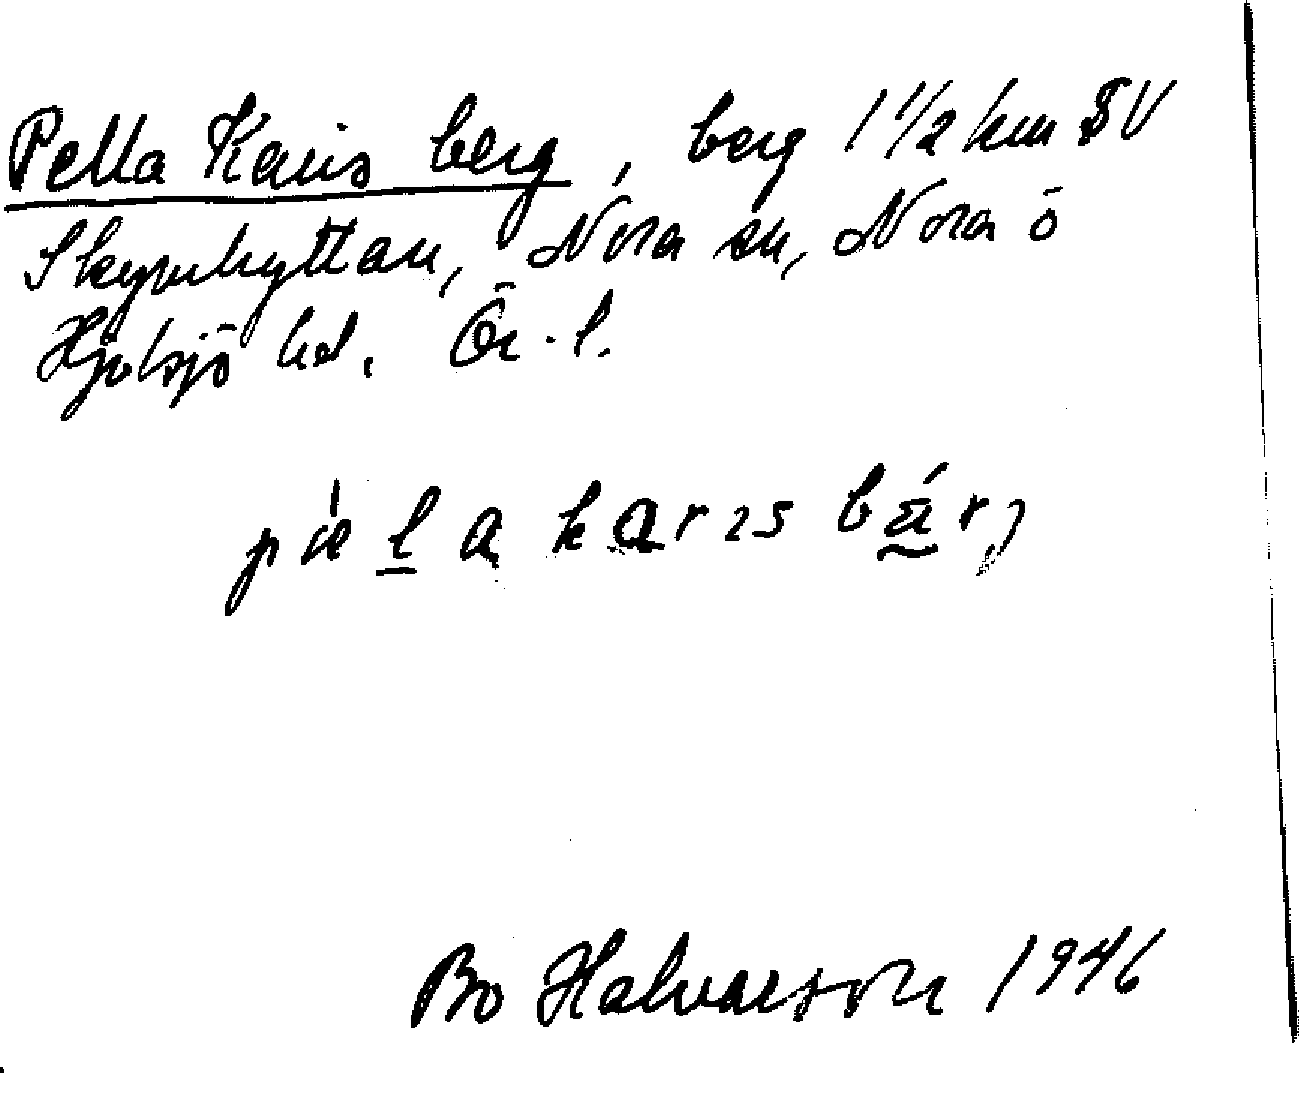 Pella Karis berg, berg 1 1/2 km SV
Skrekhyttan, Nora sn, Nora o
Hjulsjö hd. Ör. l.
Bo Halvarson 1946